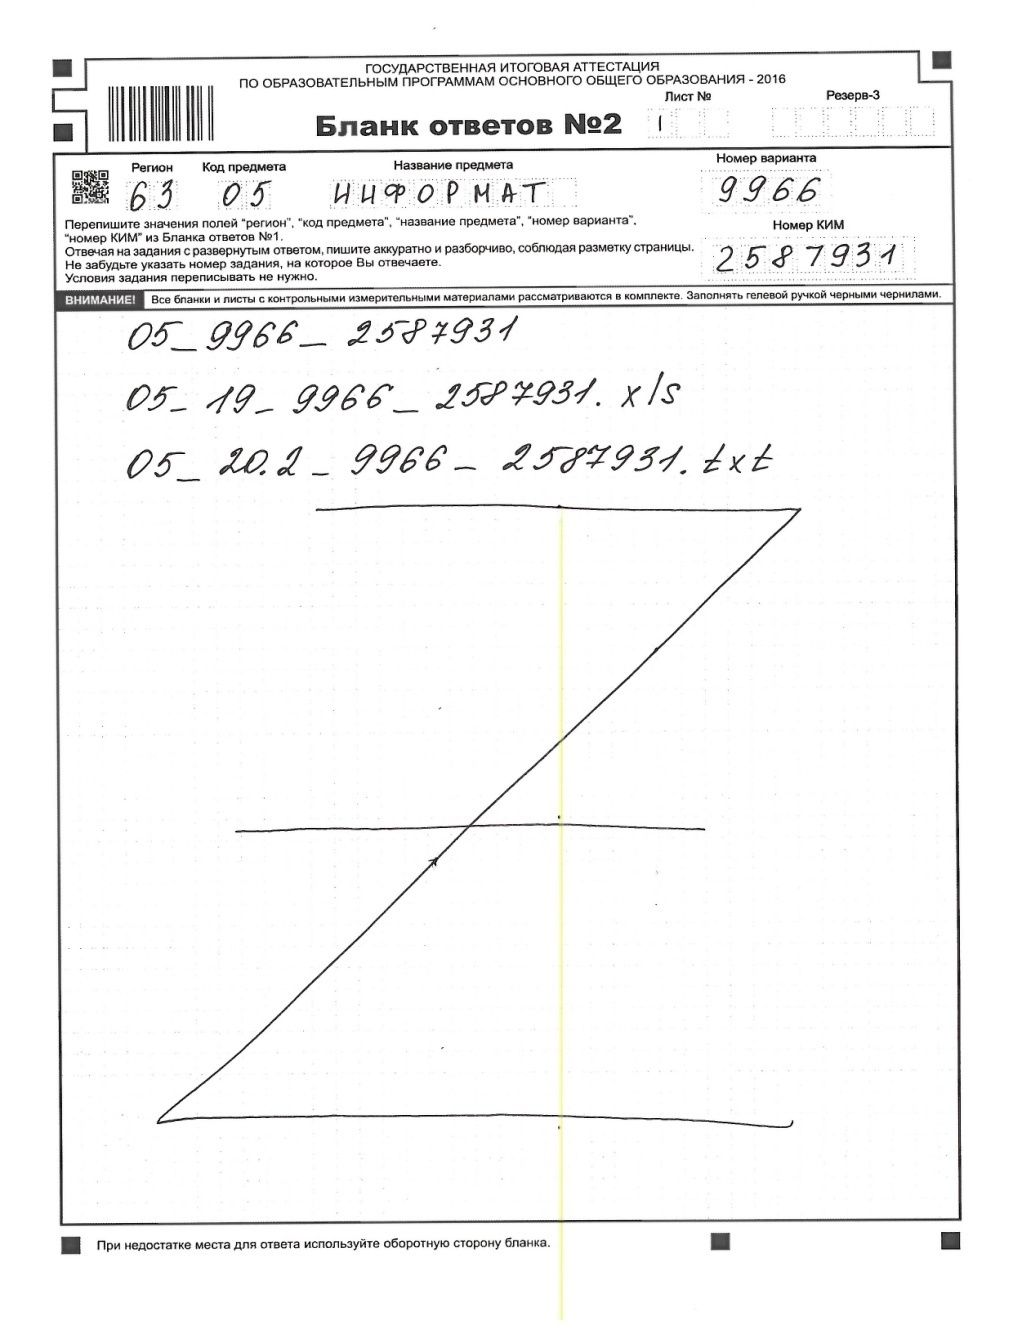 ГОСУДАРСТВЕННАЯ ИТОГОВАЯ АТТЕСТАЦИЯ
ПО ОБРАЗОВАТЕЛЬНЫМ ПРОГРАММАМ ОСНОВНОГО ОБЩЕГО ОБРАЗОВАНИЯ - 2016
Лист № Резерв-3
Бланк ответов №2 1
Регион Код предмета Название предмета Номер варианта
63 05 ИНФОРМАТ 9966
Перепишите значения полей "регион", "код предмета", "название предмета", "номер варианта".
"номер КИМ" из Бланка ответов №1.
Номер КИМ
Отвечая на задания с развернутым ответом, пишите аккуратно и разборчиво, соблюдая разметку страницы.
2587931
Не забудьте указать номер задания, на которое Вы отвечаете.
Условия задания переписывать не нужно.
ВНИМАНИЕ! Все бланки и листы с контрольными измерительными материалами рассматриваются в комплекте. Заполнять гелевой ручкой черными чернилами.
05_9966_2587931
05_19_9966_2587931.xls
05_20.2_9966_2587931.txt
При недостатке места для ответа используйте оборотную сторону бланка.